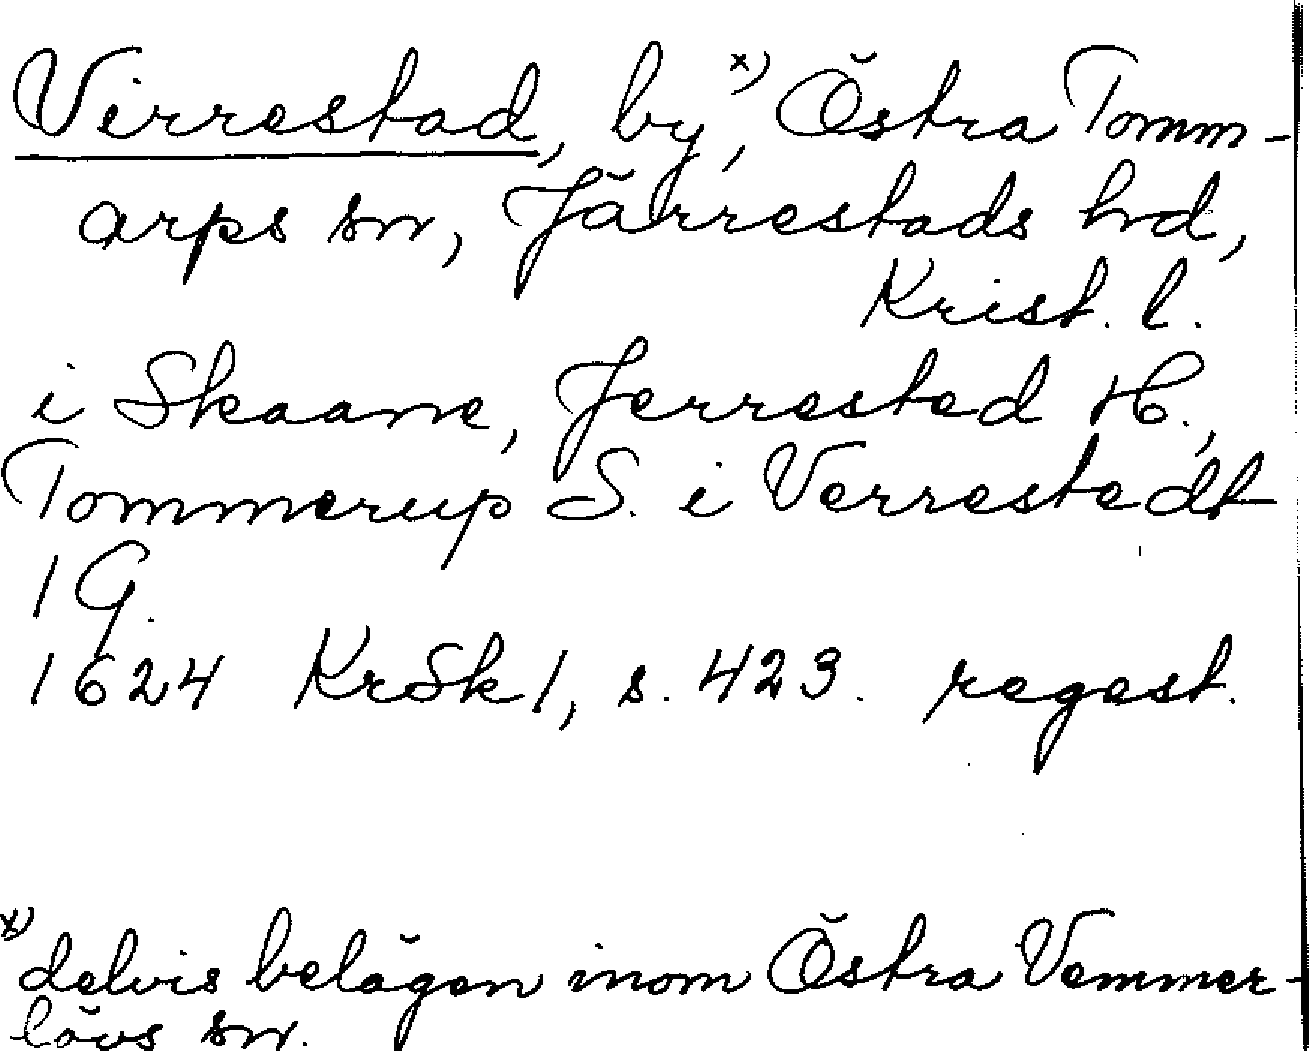 Virrestad, by,x) Östra Tomm-
arps sn, Järrestads hd,
Krist. l.
i Skaane, Jerrested H.,
Tommerup S. i Verrestedt
1 G.
1624 KrSk 1, s. 423. regest.
x) delvis belägen inom Östra Vemmer-
lövs sn.